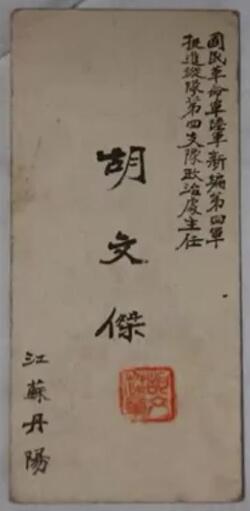 國民革命軍陸軍新編第四軍
挺進縱隊第四支隊政治處主任
胡文傑
江蘇丹陽